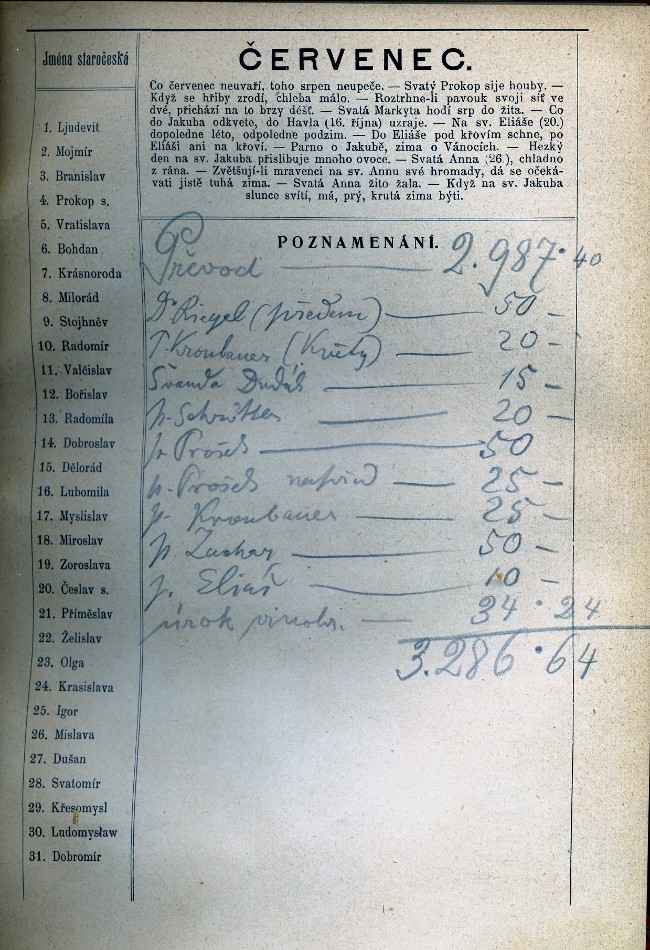 Jména staročeská
1. Ljudevit
2. Mojmír
3. Branislav
4. Prokop s.
5. Vratislava
6. Bohdan
7. Krásnoroda
8. Milorád
9. Stojhněv
10. Radomír
11. Valčislav
12. Bořislav
13. Radomíla
14. Dobroslav
15. Dělorád
16. Lubomila
17. Myslislav
18. Miroslav
19. Zoroslava
20. Česlav s.
21. Příměslav
22. Želislav
23. Olga
24. Krasislava
25. Igor
26. Mislava
27. Dušan
28. Svatomír
29. Křesomysl
30. Ludomysław
31. Dobromír
ČERVENEC.
Co červenec neuvaří, toho srpen neupeče. — Svatý Prokop sije houby. —
Když se hřiby zrodí, chleba málo. — Roztrhne-li pavouk svoji síť ve
dvé, přichází na to brzy déšť. — Svatá Markyta hodí srp do žita. — Co
do Jakuba odkvete, do Havla (16. října) uzraje. — Na sv. Eliáše (20.)
dopoledne léto, odpoledne podzim. — Do Eliáše pod křovím schne, po
Eliáši ani na křoví. — Parno o Jakubě, zima o Vánocích. — Hezký
den na sv. Jakuba přislibuje mnoho ovoce. — Svatá Anna (26.), chladno
z rána. — Zvětšují-li mravenci na sv. Annu své hromady, dá se očeká-
vati jistě tuhá zima. — Svatá Anna žito žala. — Když na sv. Jakuba
slunce svítí, má, prý, krutá zima býti.
POZNAMENÁNÍ.
Převod — 2.987·40
Dr Riegel (předem) — 50 —
P. Kronbauer (Květy) — 20 —
Švanda Dudák — 15 —
p. — 20 —
p. Prošek — 50
p. Prošek napřed — 25 —
p. Kronbauer — 25 —
p. Zachar — 50 —
p. Eliáš — 10 —
úrok vinohr. — 34·24
3.286·64